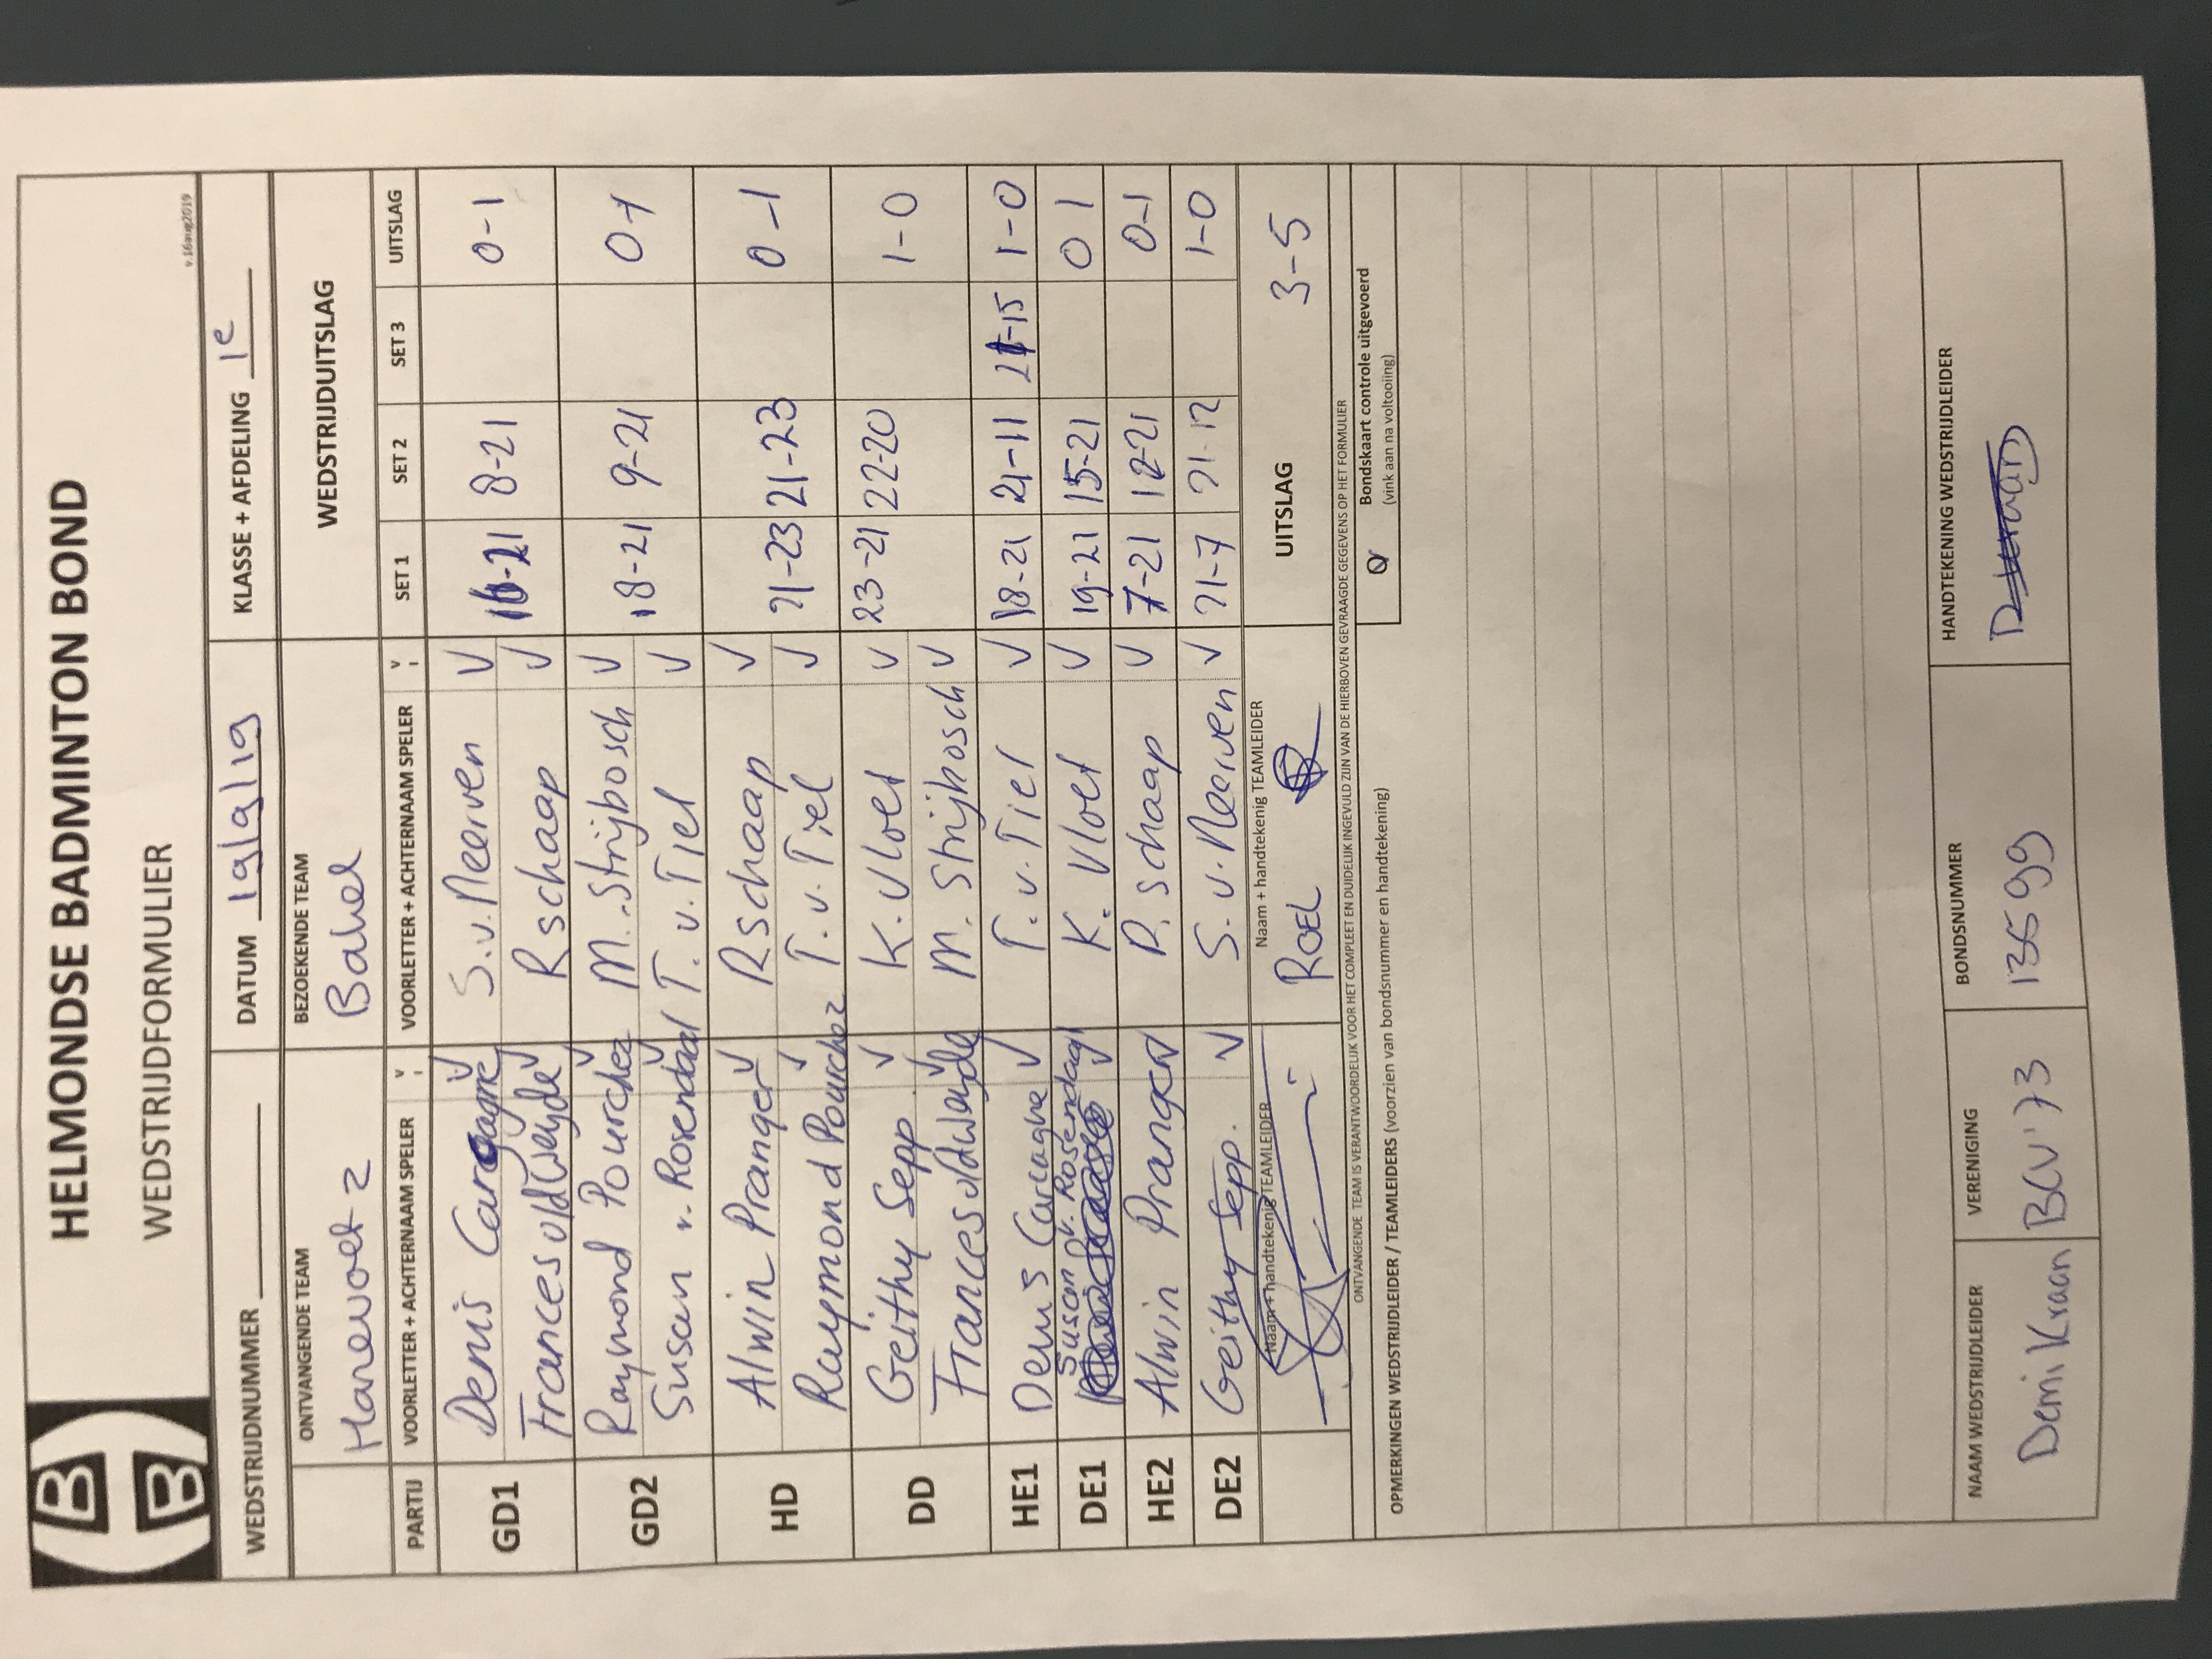 HELMONDSE BADMINTON BOND
WEDSTRIJDFORMULIER
v.16aug2019
WEDSTRIJDNUMMER DATUM 19/9/19 KLASSE + AFDELING 1e
ONTVANGENDE TEAM BEZOEKENDE TEAM WEDSTRIJDUITSLAG
Manevoet 2 Bakel
PARTIJ VOORLETTER + ACHTERNAAM SPELER V VOORLETTER + ACHTERNAAM SPELER V SET 1 SET 2 SET 3 UITSLAG
GD1 Denis V S.v.Neerven V 16-21 8-21 0-1
Frances vld Weyde V R schaap V
GD2 Raymond Pourchez V M. Strijbosch V 18-21 9-21 0-1
Susan v. Rosendaal V T. v. Tiel V
HD Alwin Pranger V R schaap V 21-23 21-23 0-1
Raymond Pourchez V T. v. Tiel V
DD Geithy Sepp V K. Vloet V 23-21 22-20 1-0
Frances vld Weyde V M. Strijbosch V
HE1 Denis Carcagne V T. v. Tiel V 18-21 21-11 21-15 1-0
DE1 Susan v. Rosendaal V K. Vloet V 19-21 15-21 0 1
HE2 Alwin Pranger V R. schaap V 7-21 12-21 0-1
DE2 Geithy Sepp. V S. v. Neerven V 21-7 21-12 1-0
Naam + handtekenig TEAMLEIDER Naam + handtekenig TEAMLEIDER UITSLAG 3-5
ROEL
ONTVANGENDE TEAM IS VERANTWOORDELIJK VOOR HET COMPLEET EN DUIDELIJK INGEVULD ZIJN VAN DE HIERBOVEN GEVRAAGDE GEGEVENS OP HET FORMULIER
Bondskaart controle uitgevoerd
(vink aan na voltooiing)
OPMERKINGEN WEDSTRIJDLEIDER / TEAMLEIDERS (voorzien van bondsnummer en handtekening)
NAAM WEDSTRIJDLEIDER VERENIGING BONDSNUMMER HANDTEKENING WEDSTRIJDLEIDER
Demi Kraan BCV'73 13599